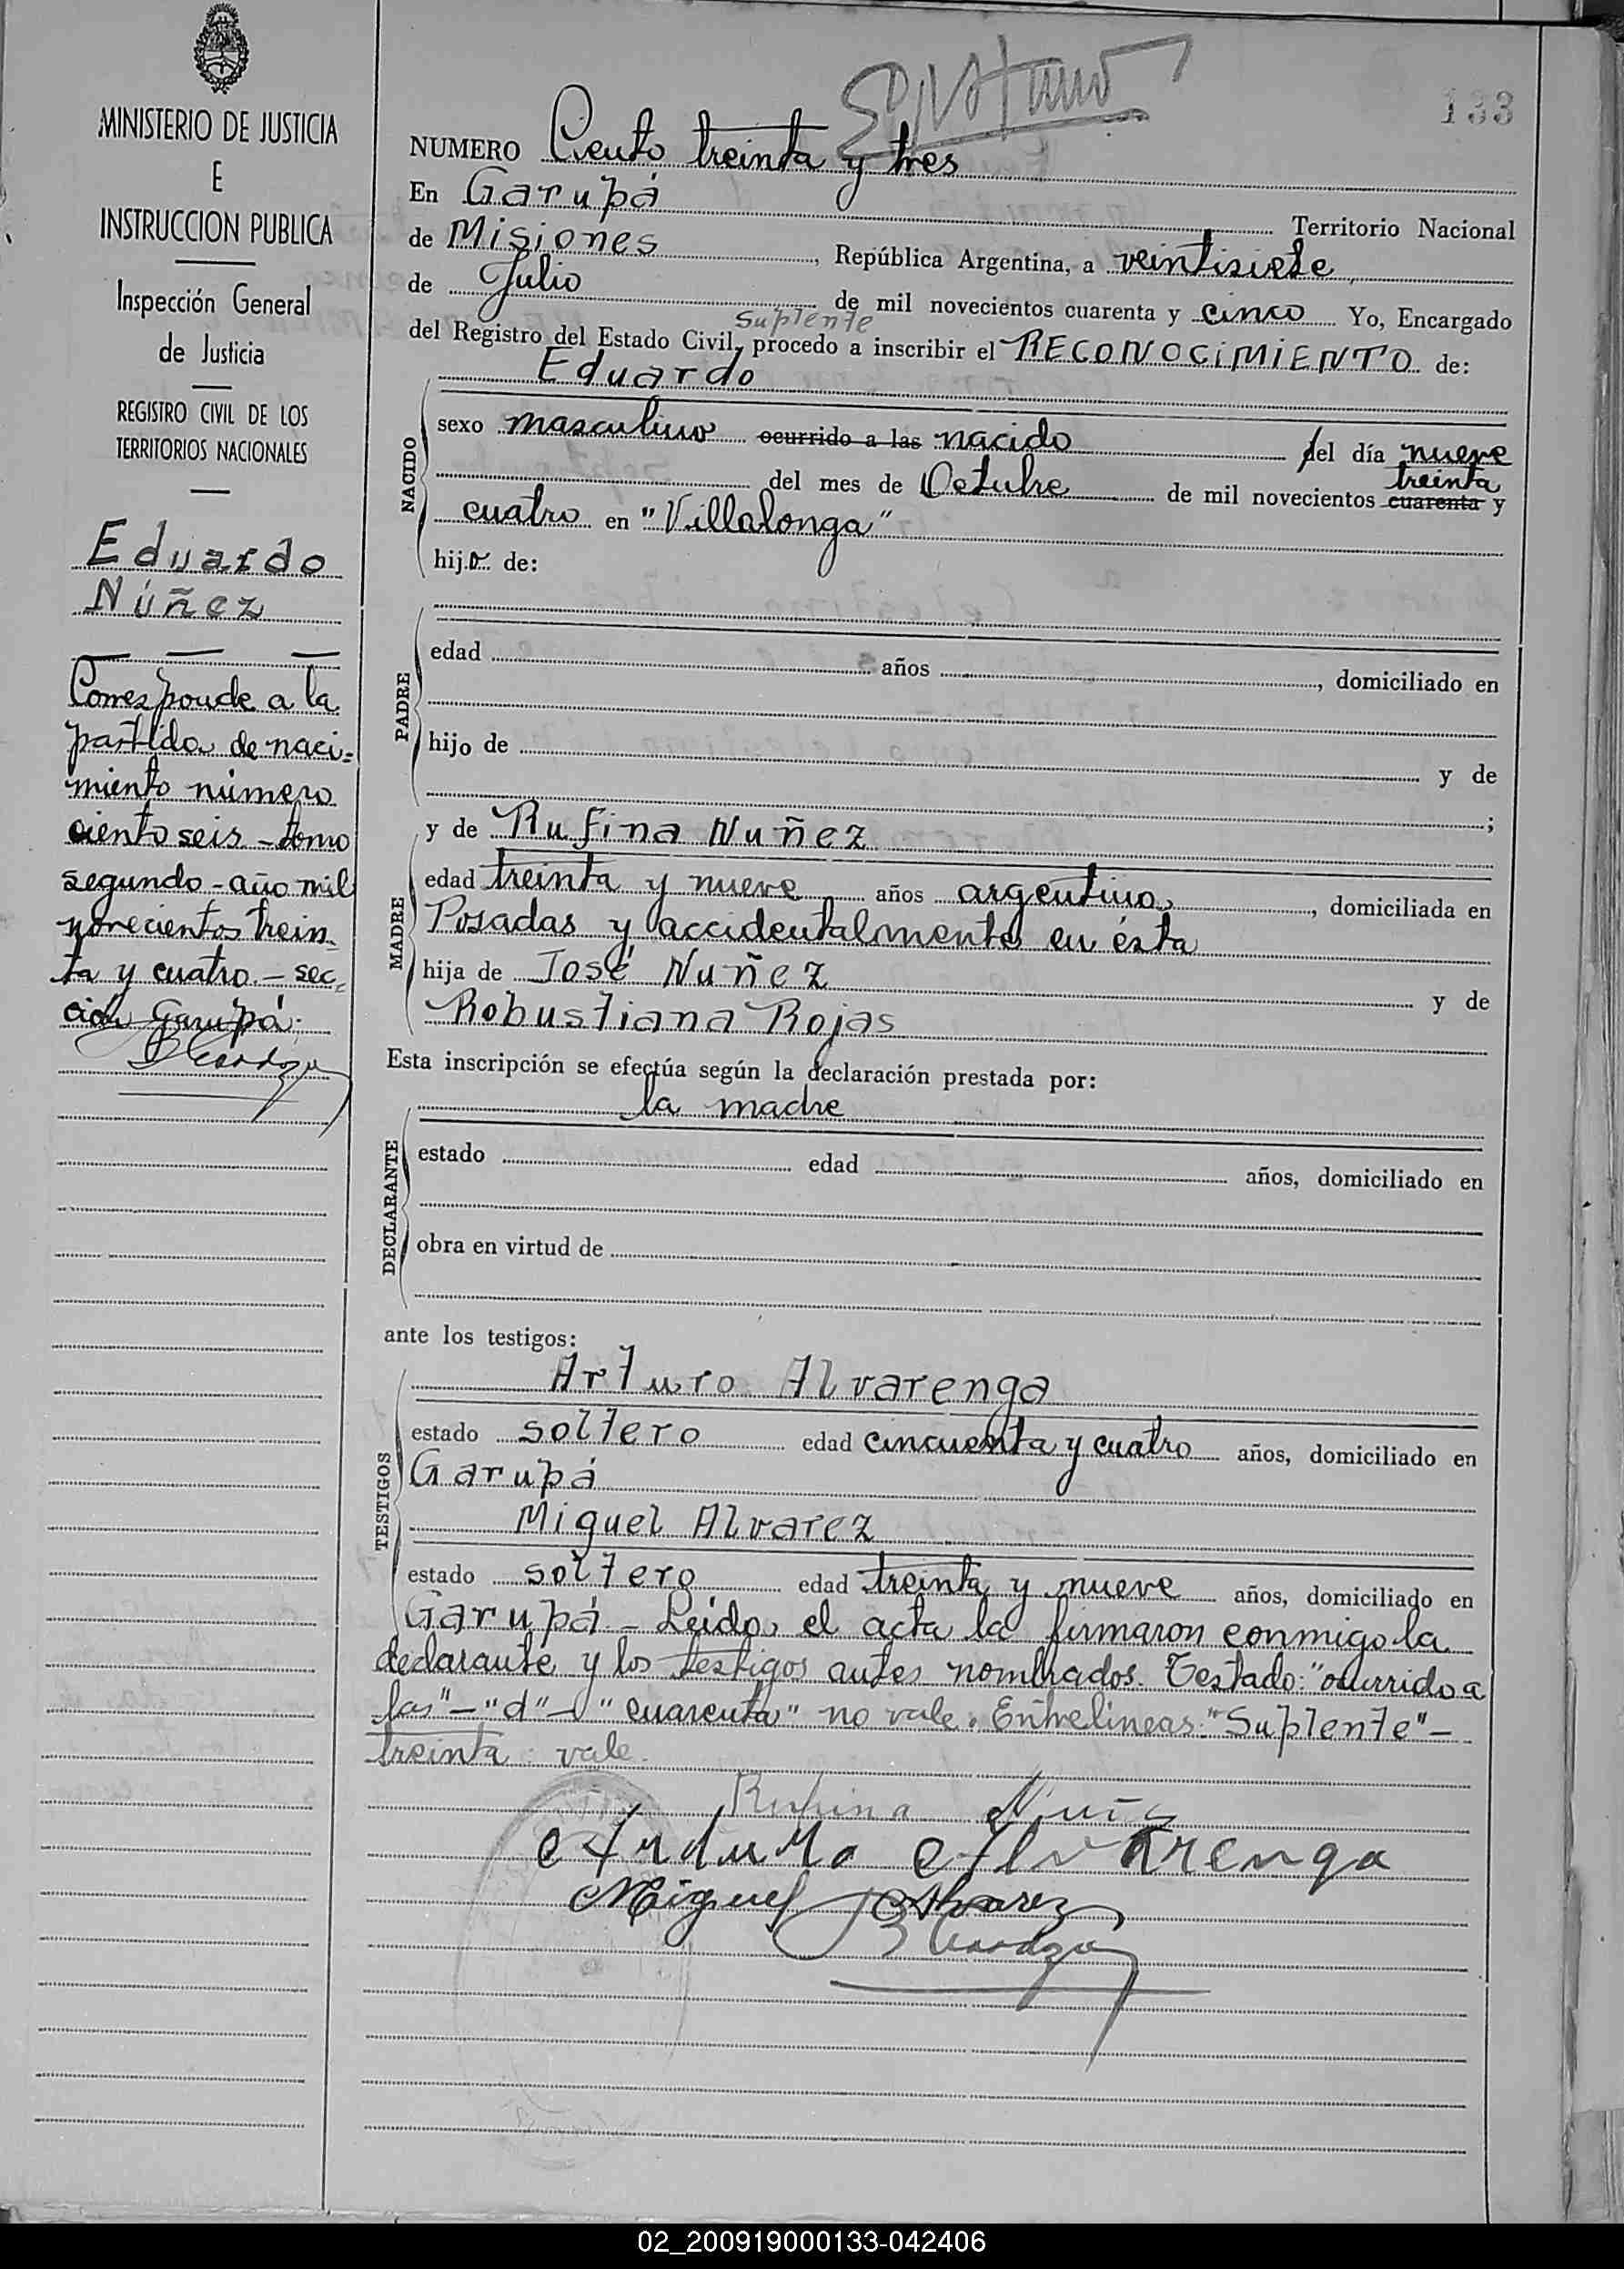 MINISTERIO DE JUSTICIA
E
INSTRUCCION PUBLICA
Inspección General
de Justicia
REGISTRO CIVIL DE LOS
TERRITORIOS NACIONALES
Eduardo
Núñez
Corresponde a la
partida de naci-
miento número
ciento seis - tomo
segundo - año mil
novecientos trein-
ta y cuatro. - sec-
ción Garupá.
133
NUMERO Ciento treinta y tres
En Garupá Territorio Nacional
de Misiones, República Argentina, a veintisiete
de Julio de mil novecientos cuarenta y cinco Yo, Encargado
Suplente
del Registro del Estado Civil, procedo a inscribir el RECONOCIMIENTO de:
Eduardo
NACIDO
sexo masculino ocurrido a las nacido del día nueve
treinta
del mes de Octubre de mil novecientos cuarenta y
cuatro en "Villalonga"
hijo de:
PADRE
edad años , domiciliado en
hijo de y de
;
MADRE
y de Rufina Nuñez
edad treinta y nueve años argentina, domiciliada en
Posadas y accidentalmente en ésta
hija de José Nuñez y de
Robustiana Rojas
Esta inscripción se efectúa según la declaración prestada por:
la madre
DECLARANTE
estado edad años, domiciliado en
obra en virtud de
ante los testigos:
TESTIGOS
Arturo Alvarenga
estado soltero edad cincuenta y cuatro años, domiciliado en
Garupá
Miguel Alvarez
estado soltero edad treinta y nueve años, domiciliado en
Garupá - Leida el acta la firmaron conmigo la
declarante y los testigos antes nombrados. Testado: "ocurrido a
las" - "d" - "cuarenta" no vale. Entrelineas: "Suplente" -
treinta: vale.
Rufina Nuñez
Arturo Alvarenga
Miguel Alvarez
02_200919000133-042406